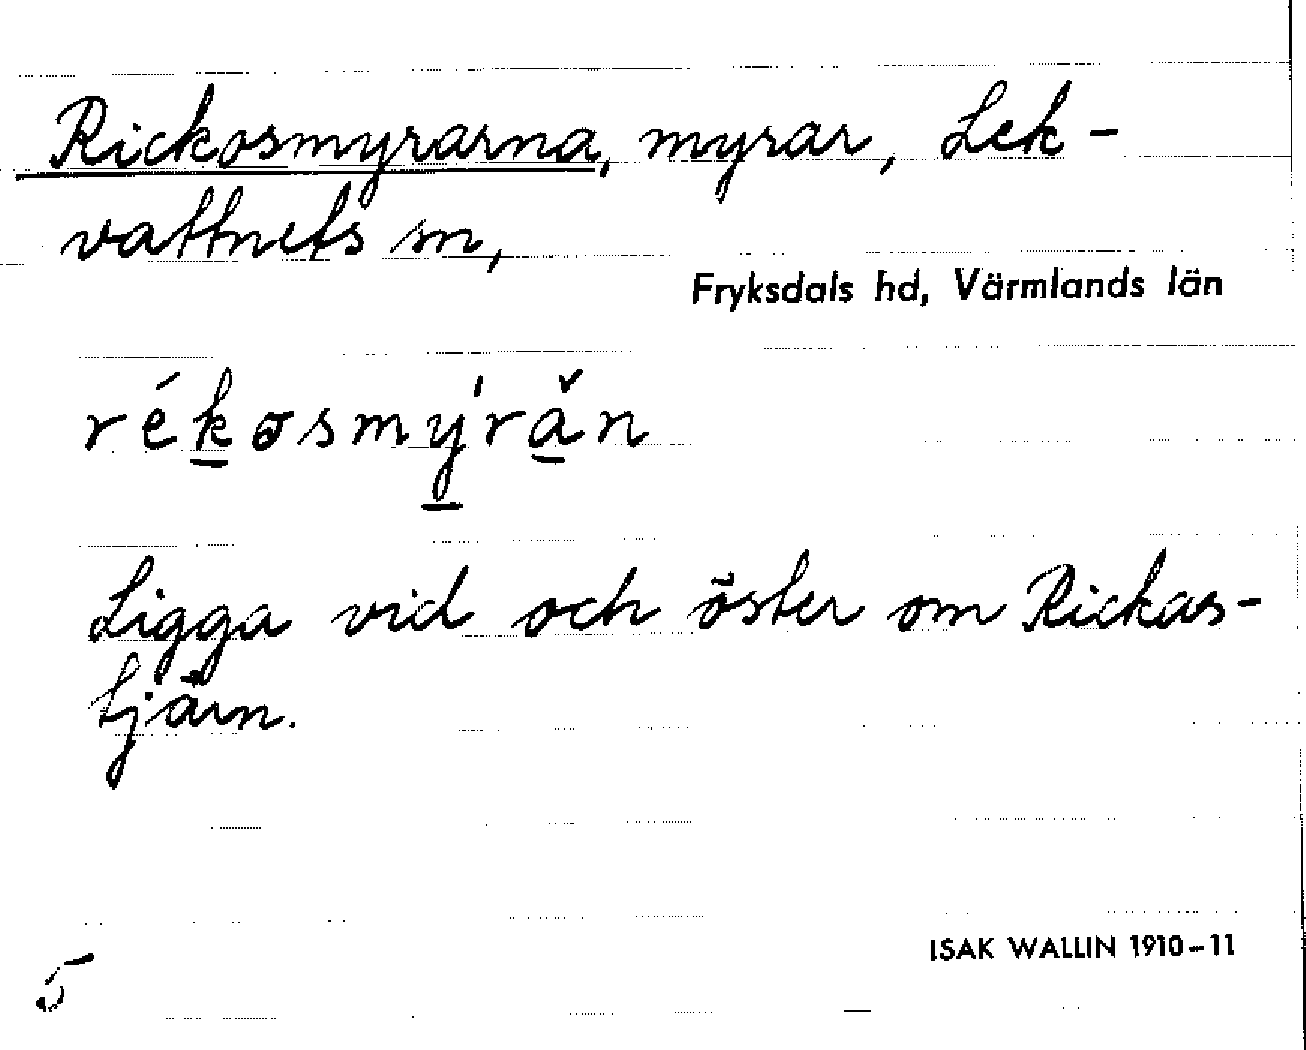 Rickosmyrarna, myrar, Lek-
vattnets sn,
Fryksdals hd, Värmlands län
rékosmýrǎn
Ligga vid och öster om Rickas-
tjärn.
ISAK WALLIN 1910-11
5